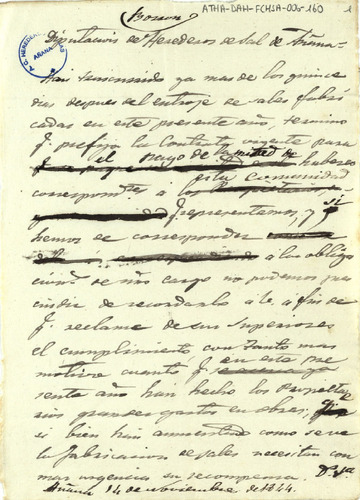 (Borron)
ATHA-DAH-FCHSA-006-160
1
Diputacion de Herederos de Sal de Añana
Han transcurrido ya mas de los quince
dias despues del entroje de sales fabri
cadas en este presente año, termino
q. prefija la Contrata vigente para
el pago de la mitad de haberes
correspond.tes a esta Comunidad
q. representamos, y si
hemos de corresponder
a las obliga
cion.s de nro cargo no podemos pres
cindir de recordarlo a V. a fin de
q. reclame de sus Superiores
el cumplimiento con tanto mas
motivo cuanto q. en este pre
sente año han hecho los Propieta
rios grandes gastos en obras,
si bien han aumentado como se ve
la fabricacion de sales necesitan con
mas urgencia su recompensa. D.s &a
Añana 14 de noviembre de 1844.